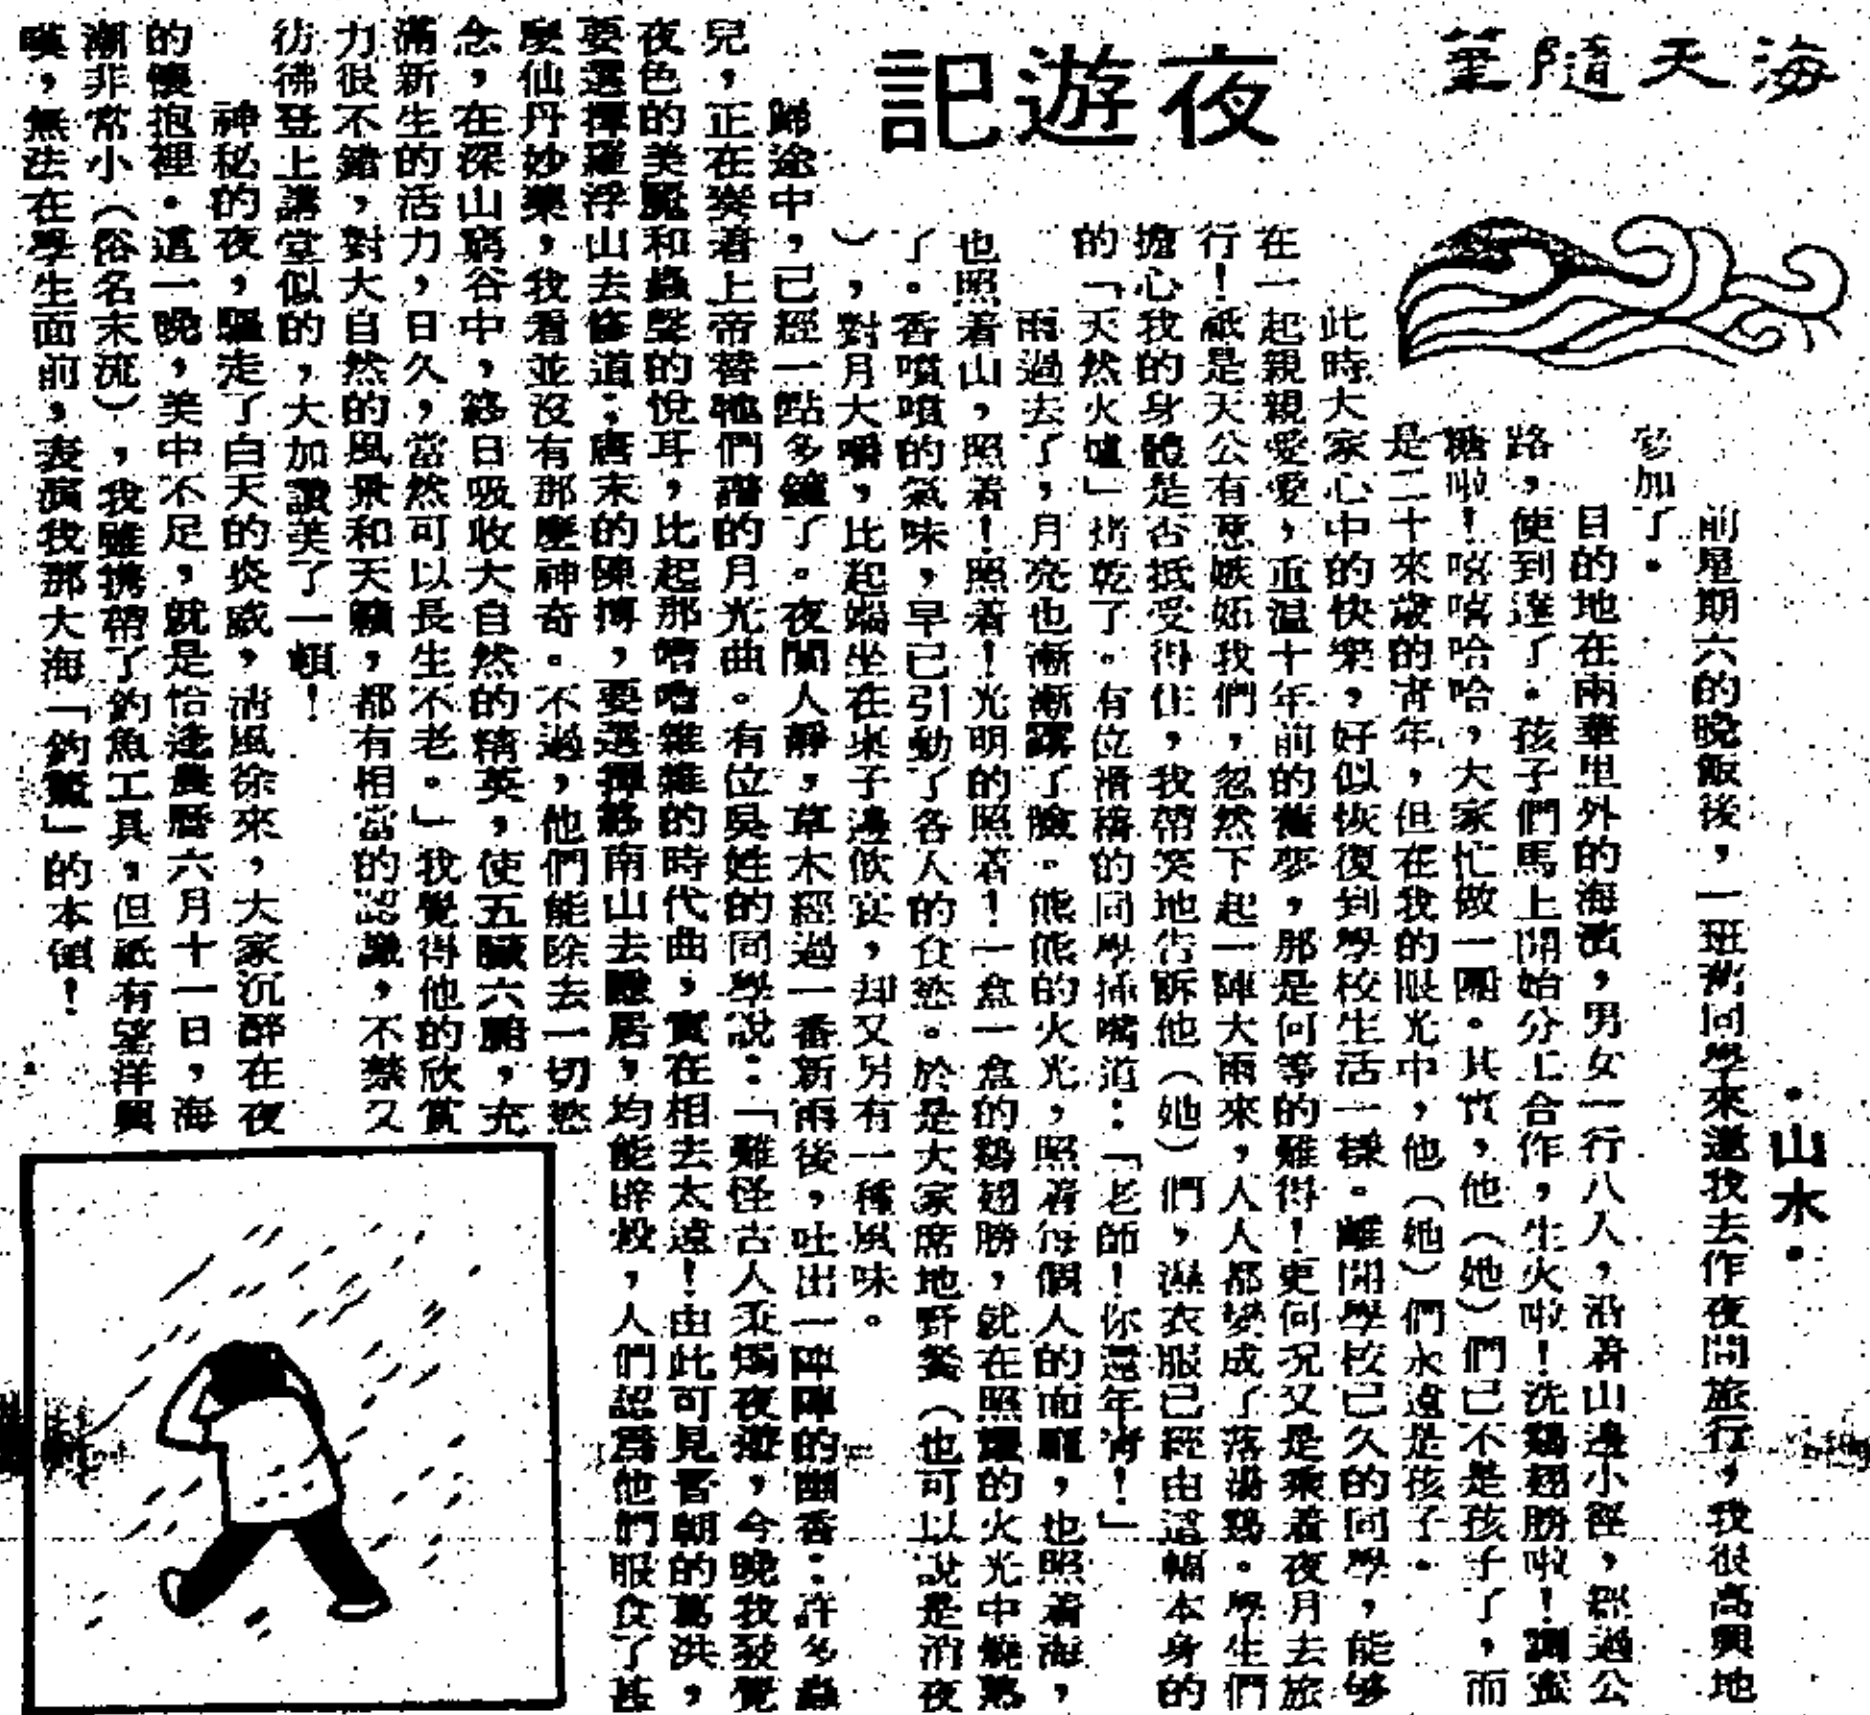 海天隨筆
夜遊記
·山木·
前星期六的晚飯後，一班舊同學來邀我去作夜間旅行，我很高興地
參加了。
目的地在兩華里外的海濱，男女一行八人，沿着山邊小徑，經過公
路，便到達了。孩子們馬上開始分工合作，生火啦！洗鷄翅膀啦！調蜜
糖啦！嘻嘻哈哈，大家忙做一團。其實，他（她）們已不是孩子了，而
是二十來歲的青年，但在我的眼光中，他（她）們永遠是孩子。
此時大家心中的快樂，好似恢復到學校生活一樣。離開學校已久的同學，能够
在一起親親愛愛，重温十年前的舊夢，那是何等的難得！更何况又是乘着夜月去旅
行！祇是天公有意嫉妬我們，忽然下起一陣大雨來，人人都變成了落湯鷄。學生們
擔心我的身體是否抵受得住，我帶笑地告訴他（她）們，濕衣服已經由這幅本身的
的「天然火爐」烤乾了。有位滑稽的同學插嘴道：「老師！你還年青！」
雨過去了，月亮也漸漸露了臉。熊熊的火光，照着每個人的面龐，也照着海，
也照着山，照着！照着！光明的照着！一盒一盒的鷄翅膀，就在照耀的火光中燒熟
了。香噴噴的氣味，早已引動了各人的食慾。於是大家席地野餐（也可以說是消夜
），對月大嚼，比起端坐在桌子邊飲宴，却又另有一種風味。
歸途中，已經一點多鐘了。夜闌人靜，草木經過一番新雨後，吐出一陣陣的幽香：許多蟲
兒，正在奏着上帝替牠們譜的月光曲。有位吳姓的同學說：「難怪古人秉燭夜遊，今晚我發覺
夜色的美麗和蟲聲的悅耳，比起那嘈嘈雜雜的時代曲，實在相去太遠！由此可見晋朝的葛洪，
要選擇羅浮山去修道；唐末的陳摶，要選擇終南山去隱居，均能辟穀，人們認爲他們服食了甚
麼仙丹妙藥，我看並沒有那麼神奇。不過，他們能除去一切慾
念，在深山窮谷中，終日吸收大自然的精英，使五臟六腑，充
滿新生的活力，日久，當然可以長生不老。」我覺得他的欣賞
力很不錯，對大自然的風景和天籟，都有相當的認識，不禁又
彷彿登上講堂似的，大加讚美了一頓！
神秘的夜，驅走了白天的炎威，清風徐來，大家沉醉在夜
的懷抱裡。這一晚，美中不足，就是恰逢農曆六月十一日，海
潮非常小（俗名末流），我雖携帶了釣魚工具，但祇有望洋興
嘆，無法在學生面前，表演我那大海「釣鰲」的本領！